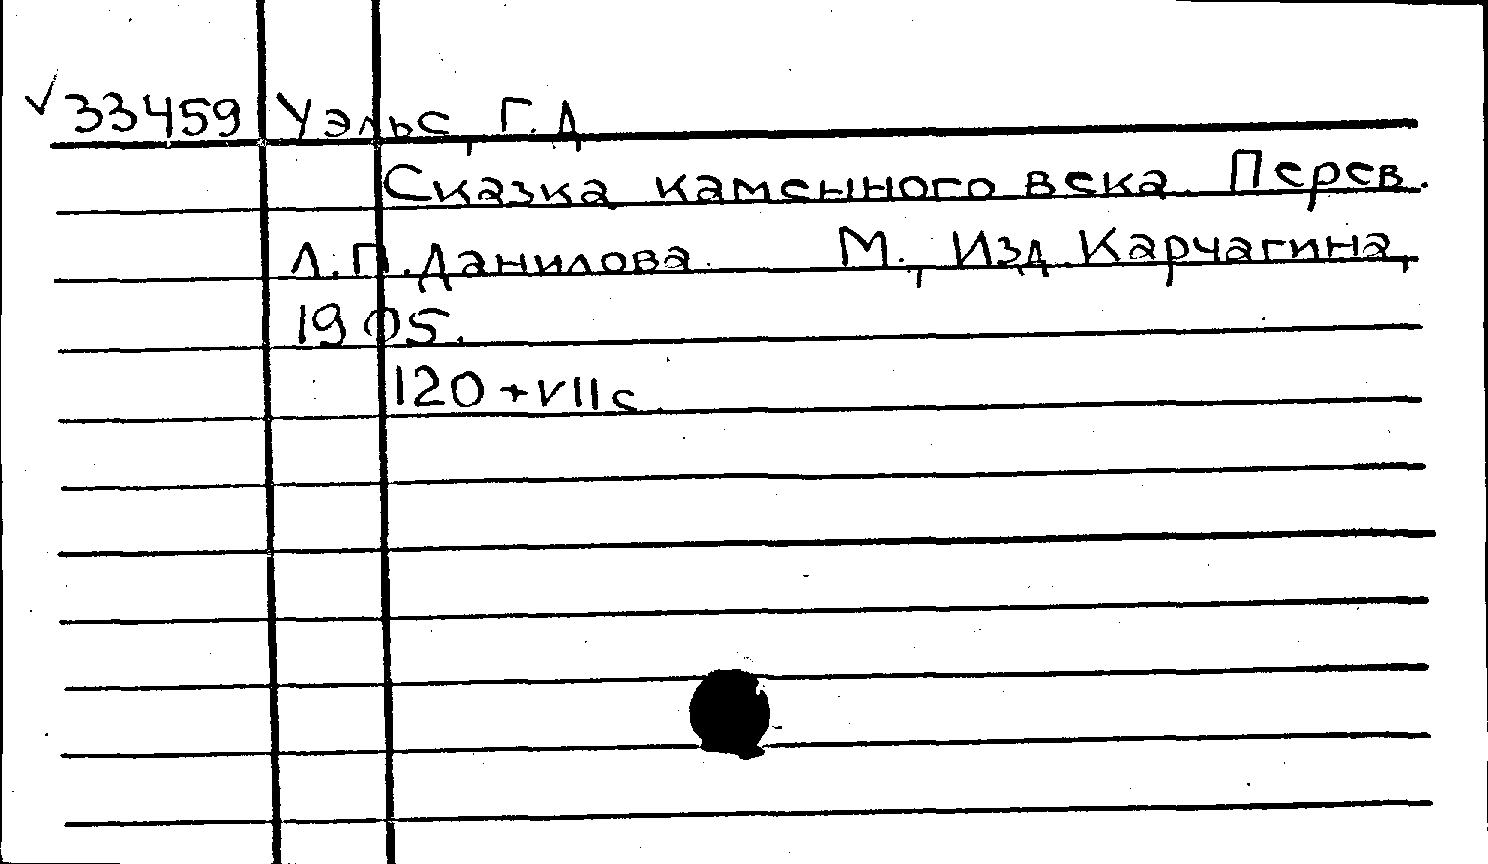 √33459 Уэльс, Г.Д
Сказка каменного века. Перев.
Л.П.Данилова. М., Изд Карчагина,
1905.
120+VII с.